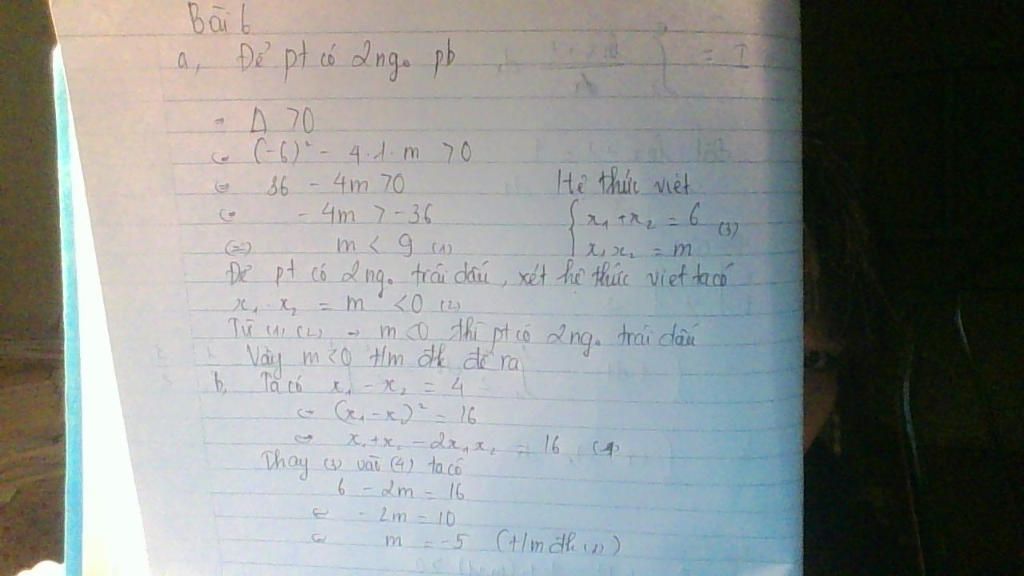 Bài 6
a, Để pt có 2 ng. pb
= I
= Δ > 0
⇔ (-6)² - 4.1.m > 0
⇔ 36 - 4m > 0
⇔ - 4m > -36
⇔ m < 9 (1)
Hệ thức viét
{ x₁ + x₂ = 6
x₁x₂ = m (3)
Để pt có 2 ng. trái dấu, xét hệ thức viet ta có
x₁ . x₂ = m < 0 (2)
Từ (1) (2) → m < 0 thì pt có 2 ng. trái dấu
Vậy m < 0 t/m đk đề ra
b, Ta có x₁ - x₂ = 4
⇔ (x₁ - x)² = 16
⇔ x₁ + x₂ - 2x₁x₂ = 16 (4)
Thay (3) vào (4) ta có
6 - 2m = 16
⇔ - 2m = 10
⇔ m = -5 (t/m đk (2))